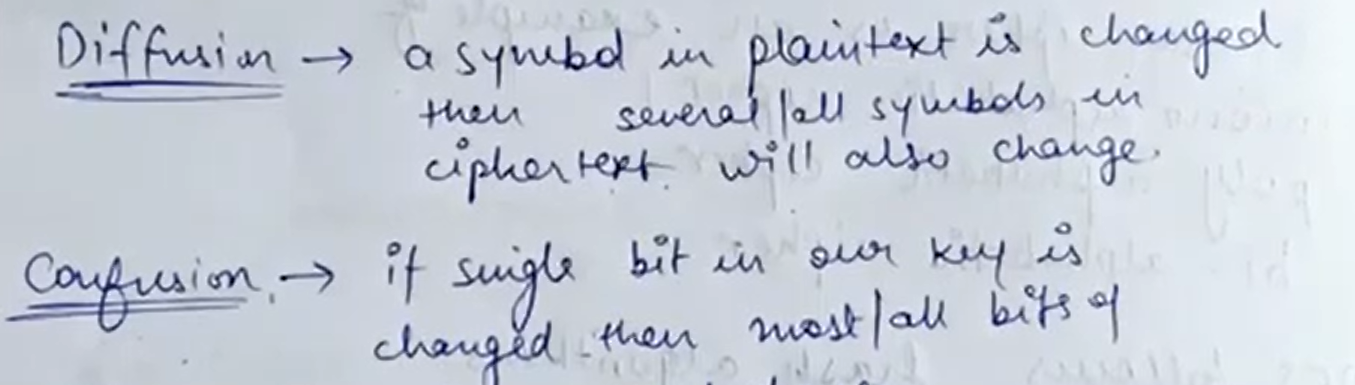 Diffusion → a symbol in plaintext is changed
then several/all symbols in
ciphertext will also change.
Confusion → if single bit in our key is
changed then most/all bits of